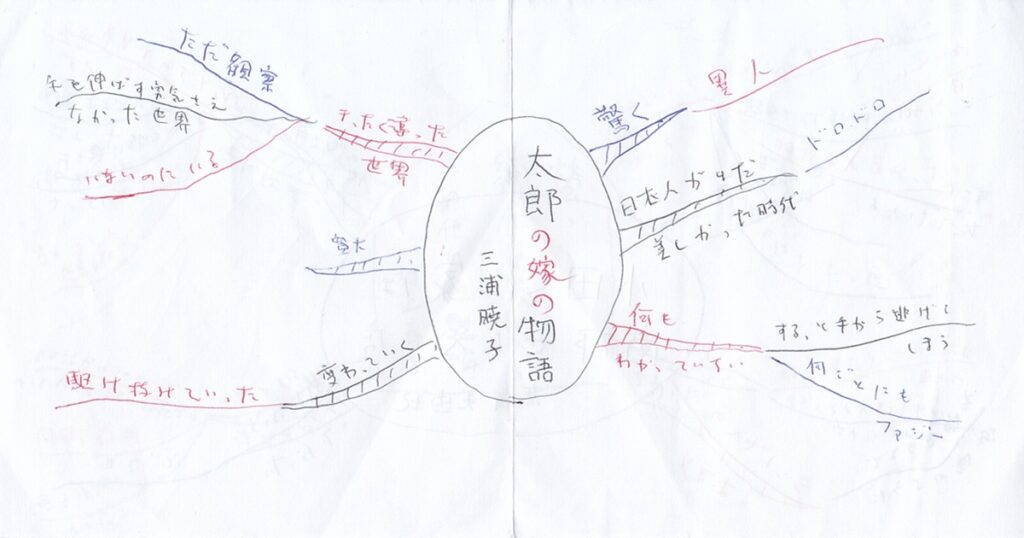 太郎の嫁の物語
三浦暁子
驚く
異人
日本人がまだ
差しかった時代
ドロドロ
何も
わかっていない
する、と手から逃げて
しまう
何ごとにも
ファジー
変わっていく
駆け抜けていった
寛大
世界
ただ観察
手を伸ばす勇気さえ
なかった世界
いないのにいる